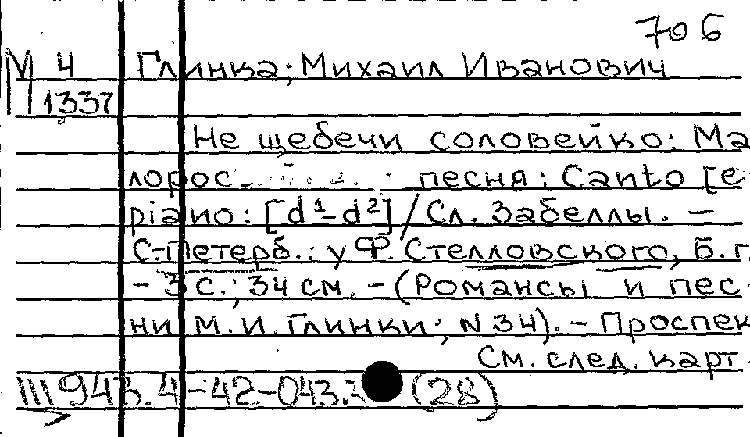 706
М 4 Глинка; Михаил Иванович
1337
Не щебечи соловейко: Ма
лорос. песня: Canto [e
piano: [d¹-d²] / Сл. Забеллы. –
С-Петерб.: у Ф. Стелловского, б.г.
– 3 с.; 34 см. – (Романсы и пес-
ни М.И. Глинки; N 34). – Проспек
См. след. карт
III 943.4-42-043.3 (28)